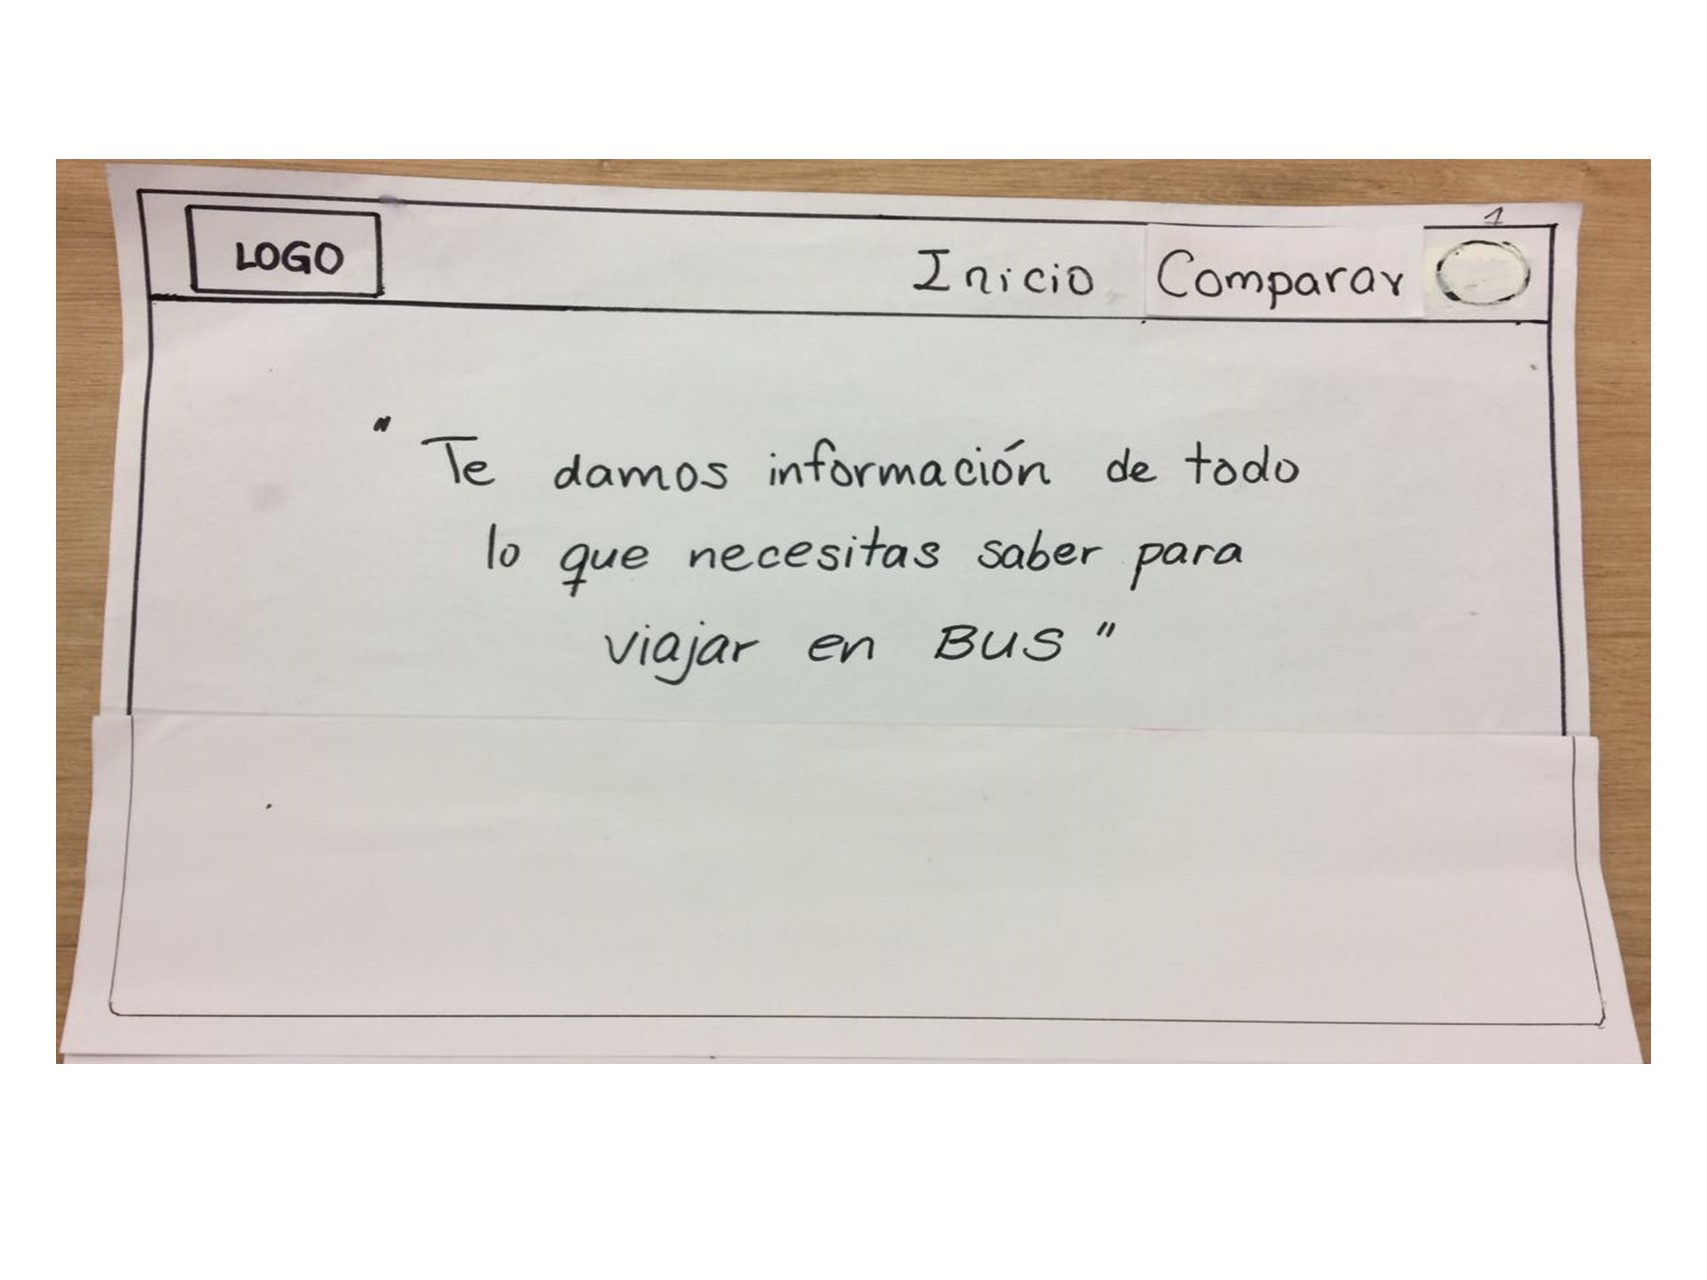 1
LOGO Inicio Comparar
"Te damos información de todo
lo que necesitas saber para
viajar en BUS"